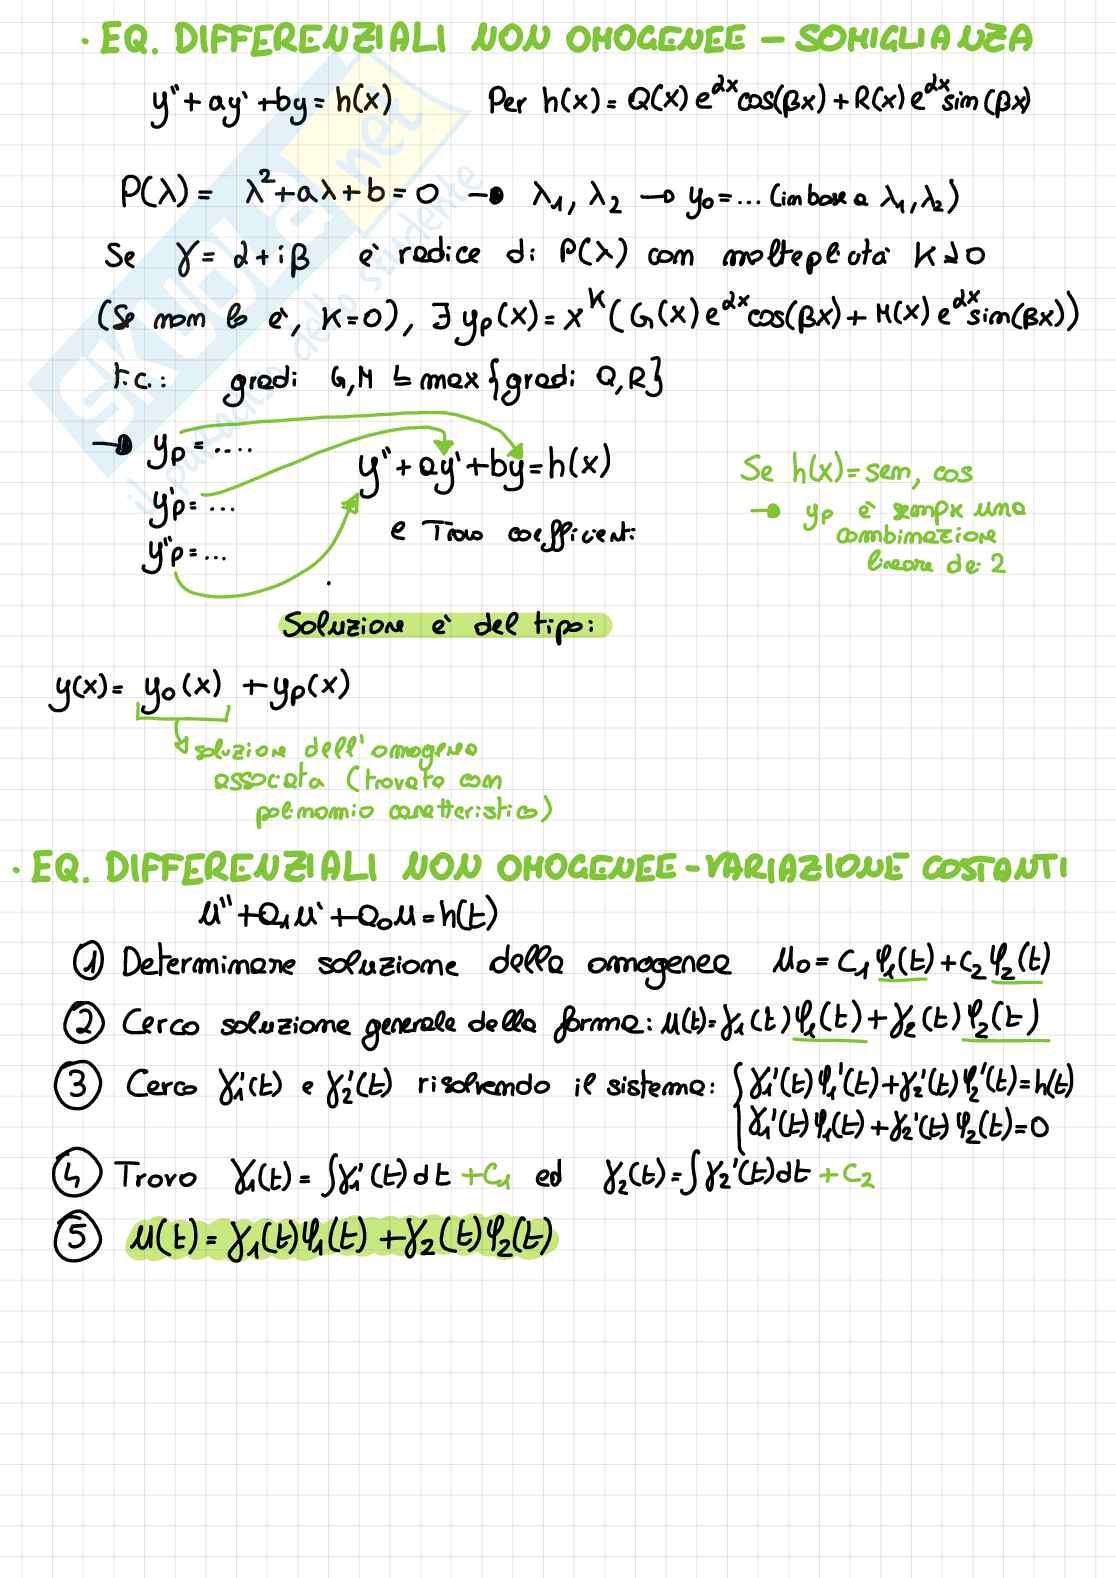 · EQ. DIFFERENZIALI NON OMOGENEE - SOMIGLIANZA
y'' + ay' + by = h(x) Per h(x) = Q(x) e^αx cos(βx) + R(x) e^αx sin(βx)
P(λ) = λ² + aλ + b = 0 → λ₁, λ₂ → y₀ = ... (in base a λ₁, λ₂)
Se γ = α + iβ è radice di P(λ) con molteplicità K>0
(Se non lo è, K=0), ∃ yp(x) = x^K (G(x) e^αx cos(βx) + M(x) e^αx sin(βx))
t.c.: gradi G, M ≤ max {gradi Q, R}
→ yp = ....
y'p = ...
y''p = ...
y'' + ay' + by = h(x)
e Trovo coefficienti
Se h(x) = sen, cos
→ yp è sempre una
combinazione
lineare dei 2
Soluzione è del tipo:
y(x) = y₀(x) + yp(x)
soluzione dell'omogenea
associata (trovata con
polinomio caratteristico)
· EQ. DIFFERENZIALI NON OMOGENEE - VARIAZIONE COSTANTI
u'' + a₁u' + a₀u = h(t)
① Determinare soluzione della omogenea u₀ = c₁ φ₁(t) + c₂ φ₂(t)
② Cerco soluzione generale della forma: u(t) = γ₁(t) φ₁(t) + γ₂(t) φ₂(t)
③ Cerco γ₁'(t) e γ₂'(t) risolvendo il sistema: { γ₁'(t) φ₁'(t) + γ₂'(t) φ₂'(t) = h(t)
γ₁'(t) φ₁(t) + γ₂'(t) φ₂(t) = 0
④ Trovo γ₁(t) = ∫γ₁'(t) dt + C₁ ed γ₂(t) = ∫γ₂'(t) dt + C₂
⑤ u(t) = γ₁(t) φ₁(t) + γ₂(t) φ₂(t)
SKUOLA.net
il paradiso dello studente